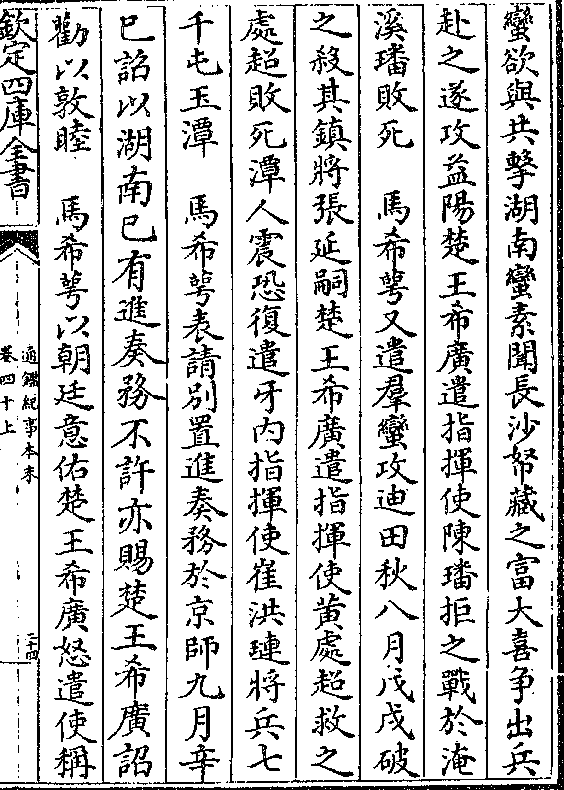 蠻欲與共擊湖南蠻素聞長沙帑藏之富大喜争出兵
赴之遂攻益陽楚王希廣遣指揮使陳璠拒之戰於淹
溪璠敗死　馬希萼又遣羣蠻攻迪田秋八月戊戌破
之殺其鎮將張延嗣楚王希廣遣指揮使黄處超救之
處超敗死潭人震恐復遣牙内指揮使崔洪璉將兵七
千屯玉潭　馬希萼表請别置進奏務於京師九月辛
巳詔以湖南已有進奏務不許亦賜楚王希廣詔
勸以敦睦　馬希萼以朝廷意佑楚王希廣怒遣使稱
欽定四庫全書
通鑑紀事本末
卷四十上
二十四